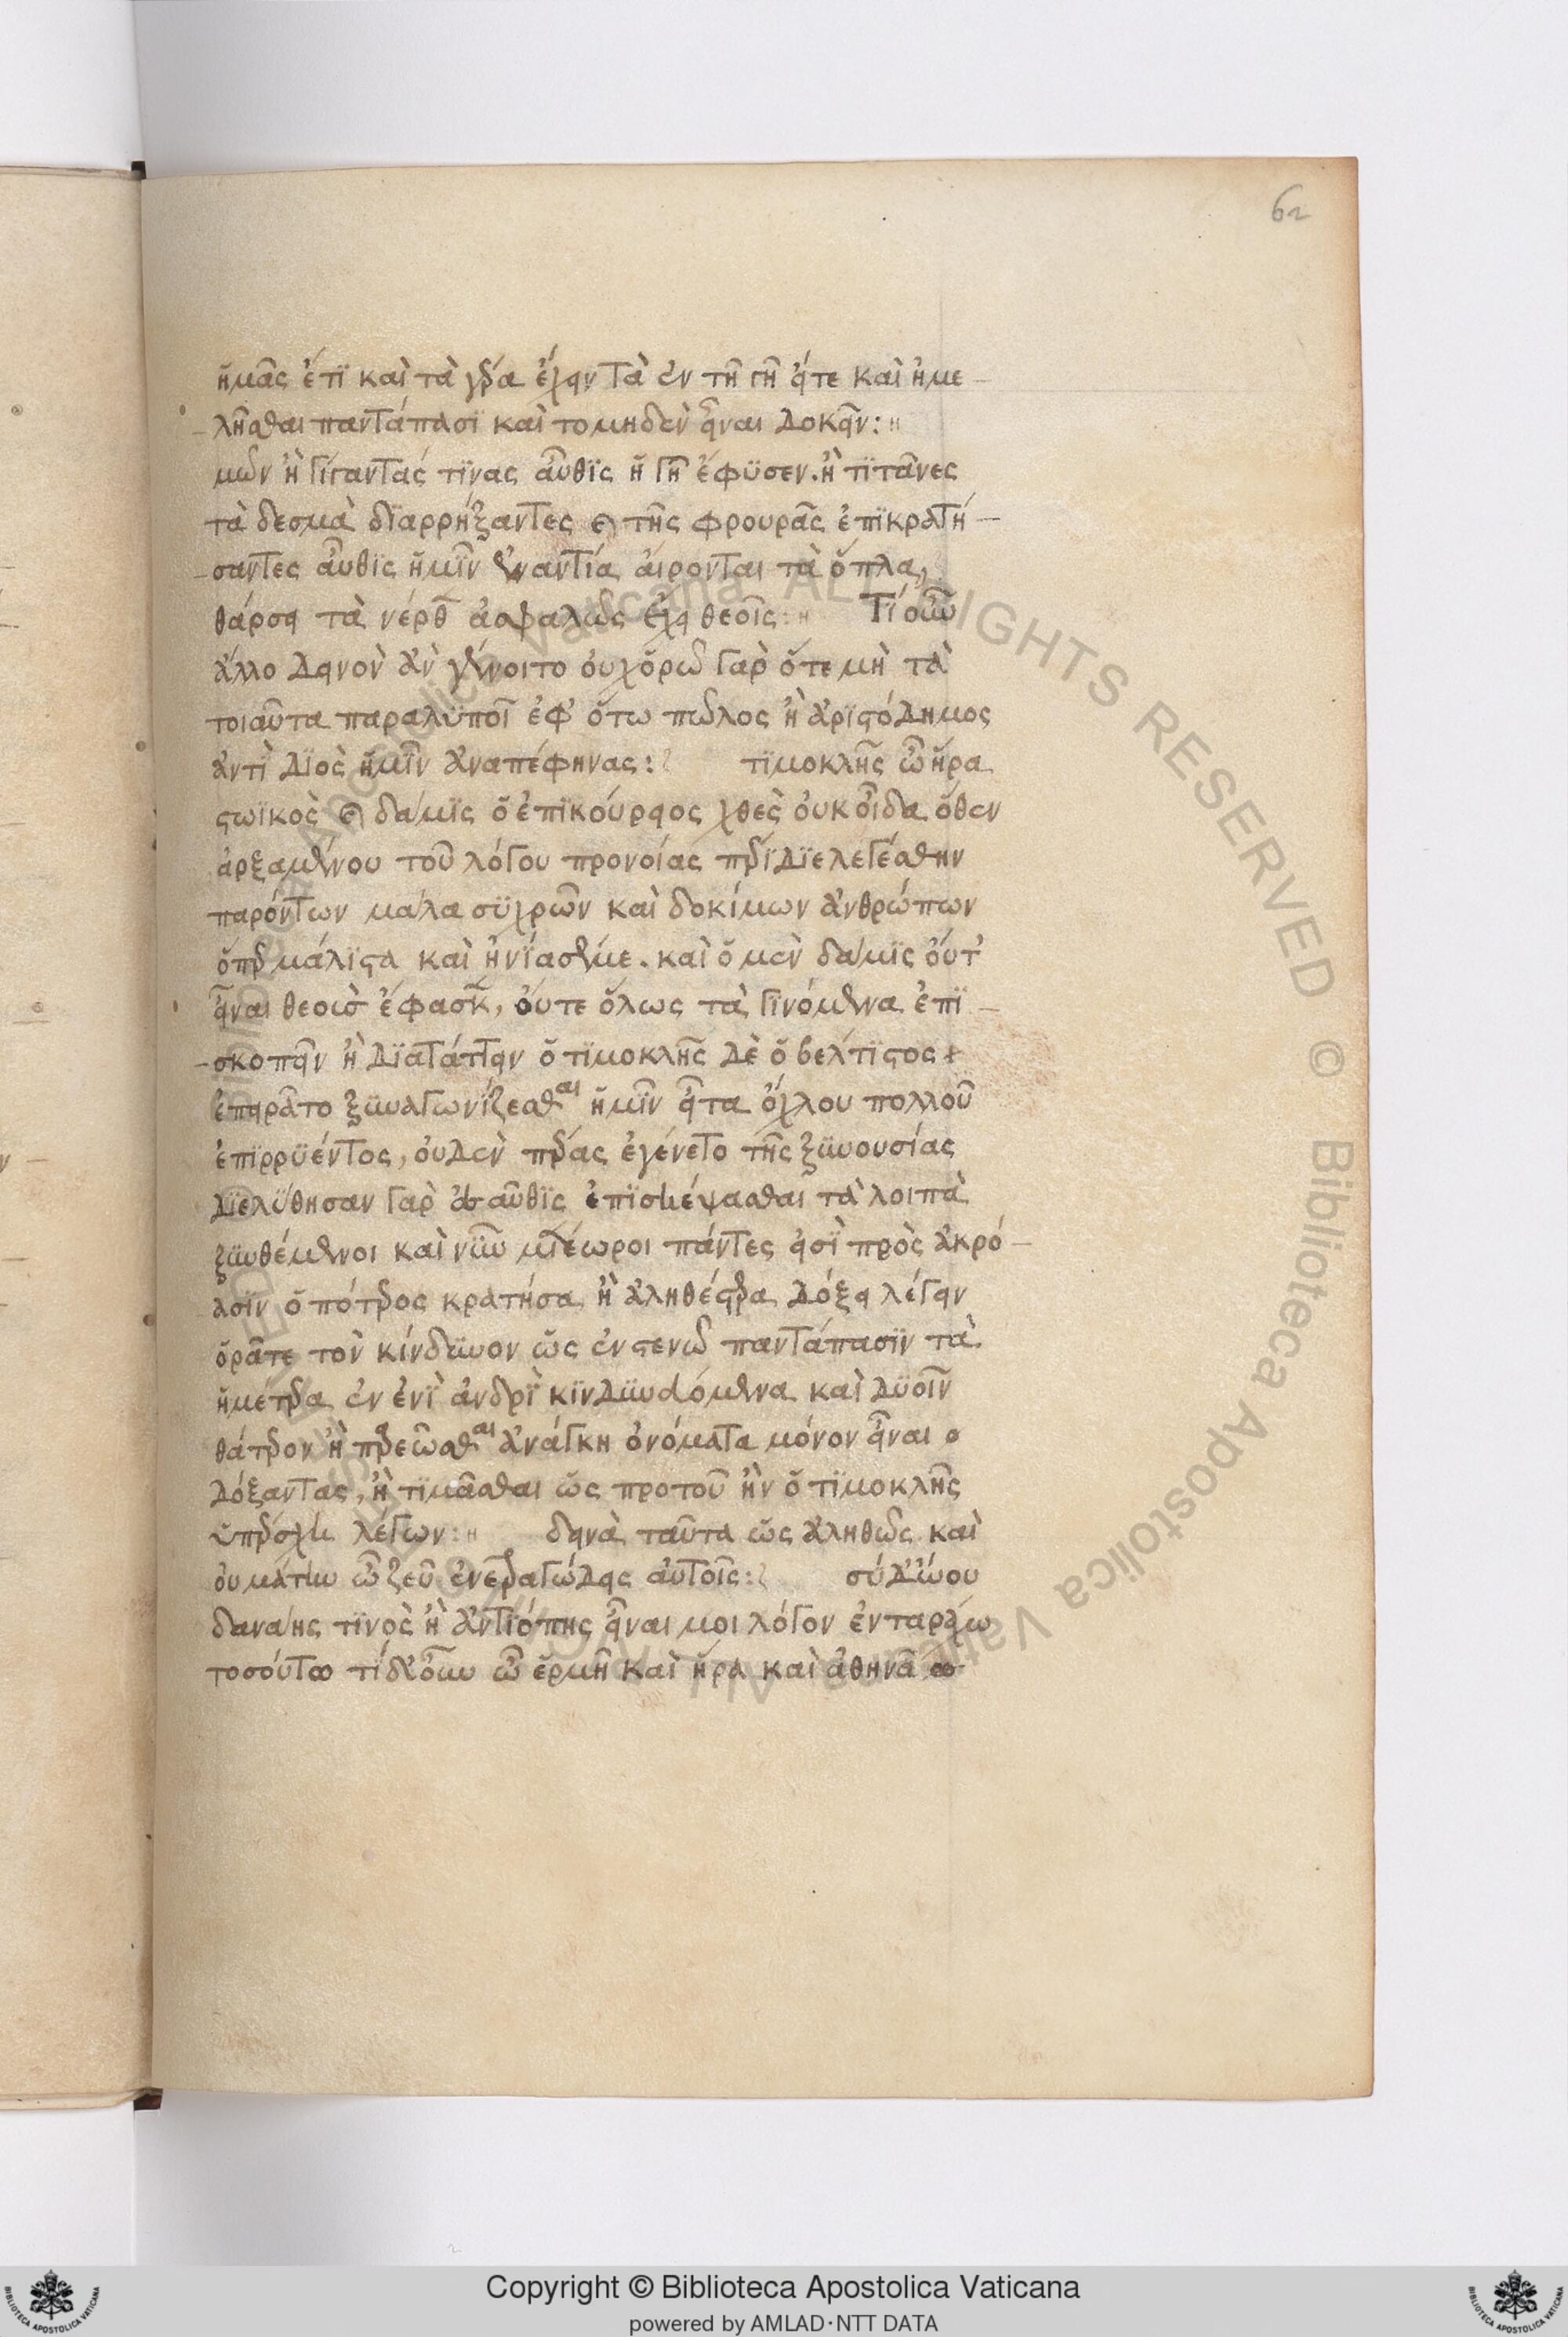 62
ἡμᾶς ἔτϊ καὶ τὰ γέρα ἔχειν τὰ ἐν τῆ γῆ εἴτε καὶ ἠμε
λῆσθαι παντάπασϊ καὶ το μηδὲν εἶναι δοκεῖν:
μῶν ἢ γίγαντάς τϊνας αὖθϊς ἡ γῆ ἔφϋσεν. ἢ τϊτᾶνες
τὰ δεσμὰ δϊαρρήξαντες καὶ τῆς φρουρᾶς ἐπϊκρατή
σαντες αὖθϊς ἡμῖν ἐναντία αἴρονται τὰ ὅπλα,
θάρσει τὰ νέρθεν ἀσφαλῶς ἔχει θεοῖς: Τί οὖν
ἄλλο δεινὸν ἂν γένοιτο οὐχ ὁρῶ γὰρ ὅτε μὴ τὰ
τοιαῦτα παραλϋποῖ ἐφ' ὅτω πῶλος ἢ ἀρϊστόδημος
ἀντὶ Δϊὸς ἡμῖν ἀναπέφηνας: τϊμοκλῆς ὦ ἥρα
στωϊκὸς καὶ δάμϊς ὁ ἐπϊκούρειος χθὲς οὐκ οἶδα ὅθεν
ἀρξαμένου τοῦ λόγου προνοίας πέρϊ δϊελεγέσθην
παρόντων μάλα συχνῶν καὶ δοκίμων ἀνθρώπων
ὅπερ μάλϊστα καὶ ἠνίασέ με. καὶ ὁ μὲν δάμϊς οὔτ'
εἶναι θεοὺς ἔφασκεν, οὔτε ὅλως τὰ γϊνόμενα ἐπϊ
σκοπεῖν ἢ δϊατάττειν ὁ τϊμοκλῆς δὲ ὁ βέλτϊστος
ἐπειρᾶτο ξϋναγωνίζεσθαι ἡμῖν εἶτα ὄχλου πολλοῦ
ἐπϊρρϋέντος, οὐδὲν πέρας ἐγένετο τῆς ξϋνουσίας
δϊελύθησαν γὰρ εἰσ αὖθϊς ἐπϊσκέψασθαι τὰ λοιπὰ
ξϋνθέμενοι καὶ νῦν μετέωροι πάντες εἰσϊ πρὸς ἀκρό
ασϊν ὁπότερος κρατήσει ἢ ἀληθέστερα δόξει λέγειν
ὁρᾶτε τὸν κίνδϋνον ὡς ἐν στενῶ παντάπασϊν τὰ
ἡμέτερα ἐν ἑνὶ ἀνδρὶ κϊνδϋνευόμενα καὶ δϋοῖν
θάτερον ἢ παρεῶσθαι ἀνάγκη ὀνόματα μόνον εἶναι
δόξαντας, ἢ τϊμᾶσθαι ὡς προτοῦ ἢν ὁ τϊμοκλῆς
ὑπέρσχη λέγων: δεινὰ ταῦτα ὡς ἀληθῶς καὶ
οὐ μάτην ὦ ζεῦ ἐνετραγώδεις αὐτοῖς: σὺ δ' ὤου
δανάης τϊνὸς ἢ ἀντιόπης εἶναι μοι λόγον ἐν ταράχω
τοσούτω τί δ' οὖν ὦ ἑρμῆ καὶ ἥρα καὶ ἀθηνᾶ
Copyright © Biblioteca Apostolica Vaticana
powered by AMLAD·NTT DATA